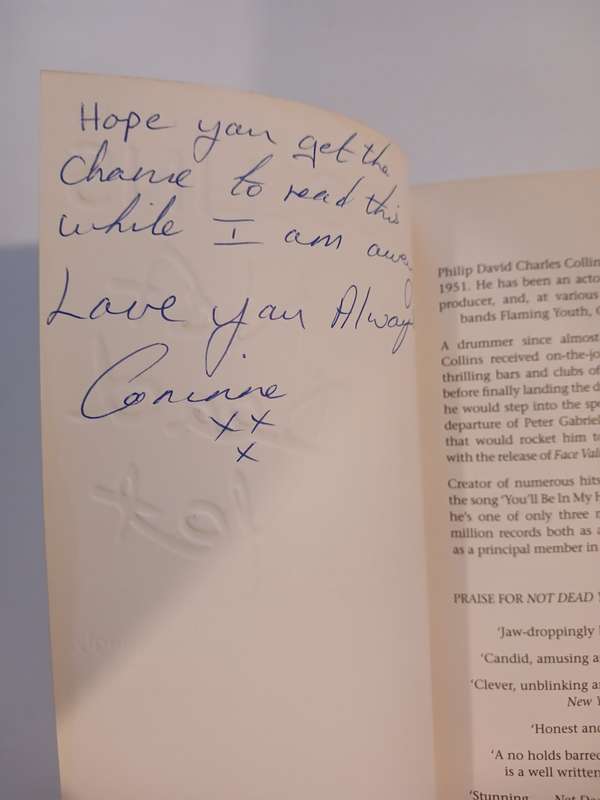 Hope you get the
Chance to read this
while I am away
Love you Always
Corinne
xx
x
Philip David Charles Collin
1951. He has been an acto
producer, and, at various
bands Flaming Youth, 
A drummer since almost
Collins received on-the-jo
thrilling bars and clubs of
before finally landing the d
he would step into the spo
departure of Peter Gabriel
that would rocket him to
with the release of Face Val
Creator of numerous hits
the song 'You'll Be In My H
he's one of only three m
million records both as a
as a principal member in
PRAISE FOR NOT DEAD Y
'Jaw-droppingly
'Candid, amusing a
'Clever, unblinking an
New Y
'Honest and
'A no holds barred
is a well written
'Stunning